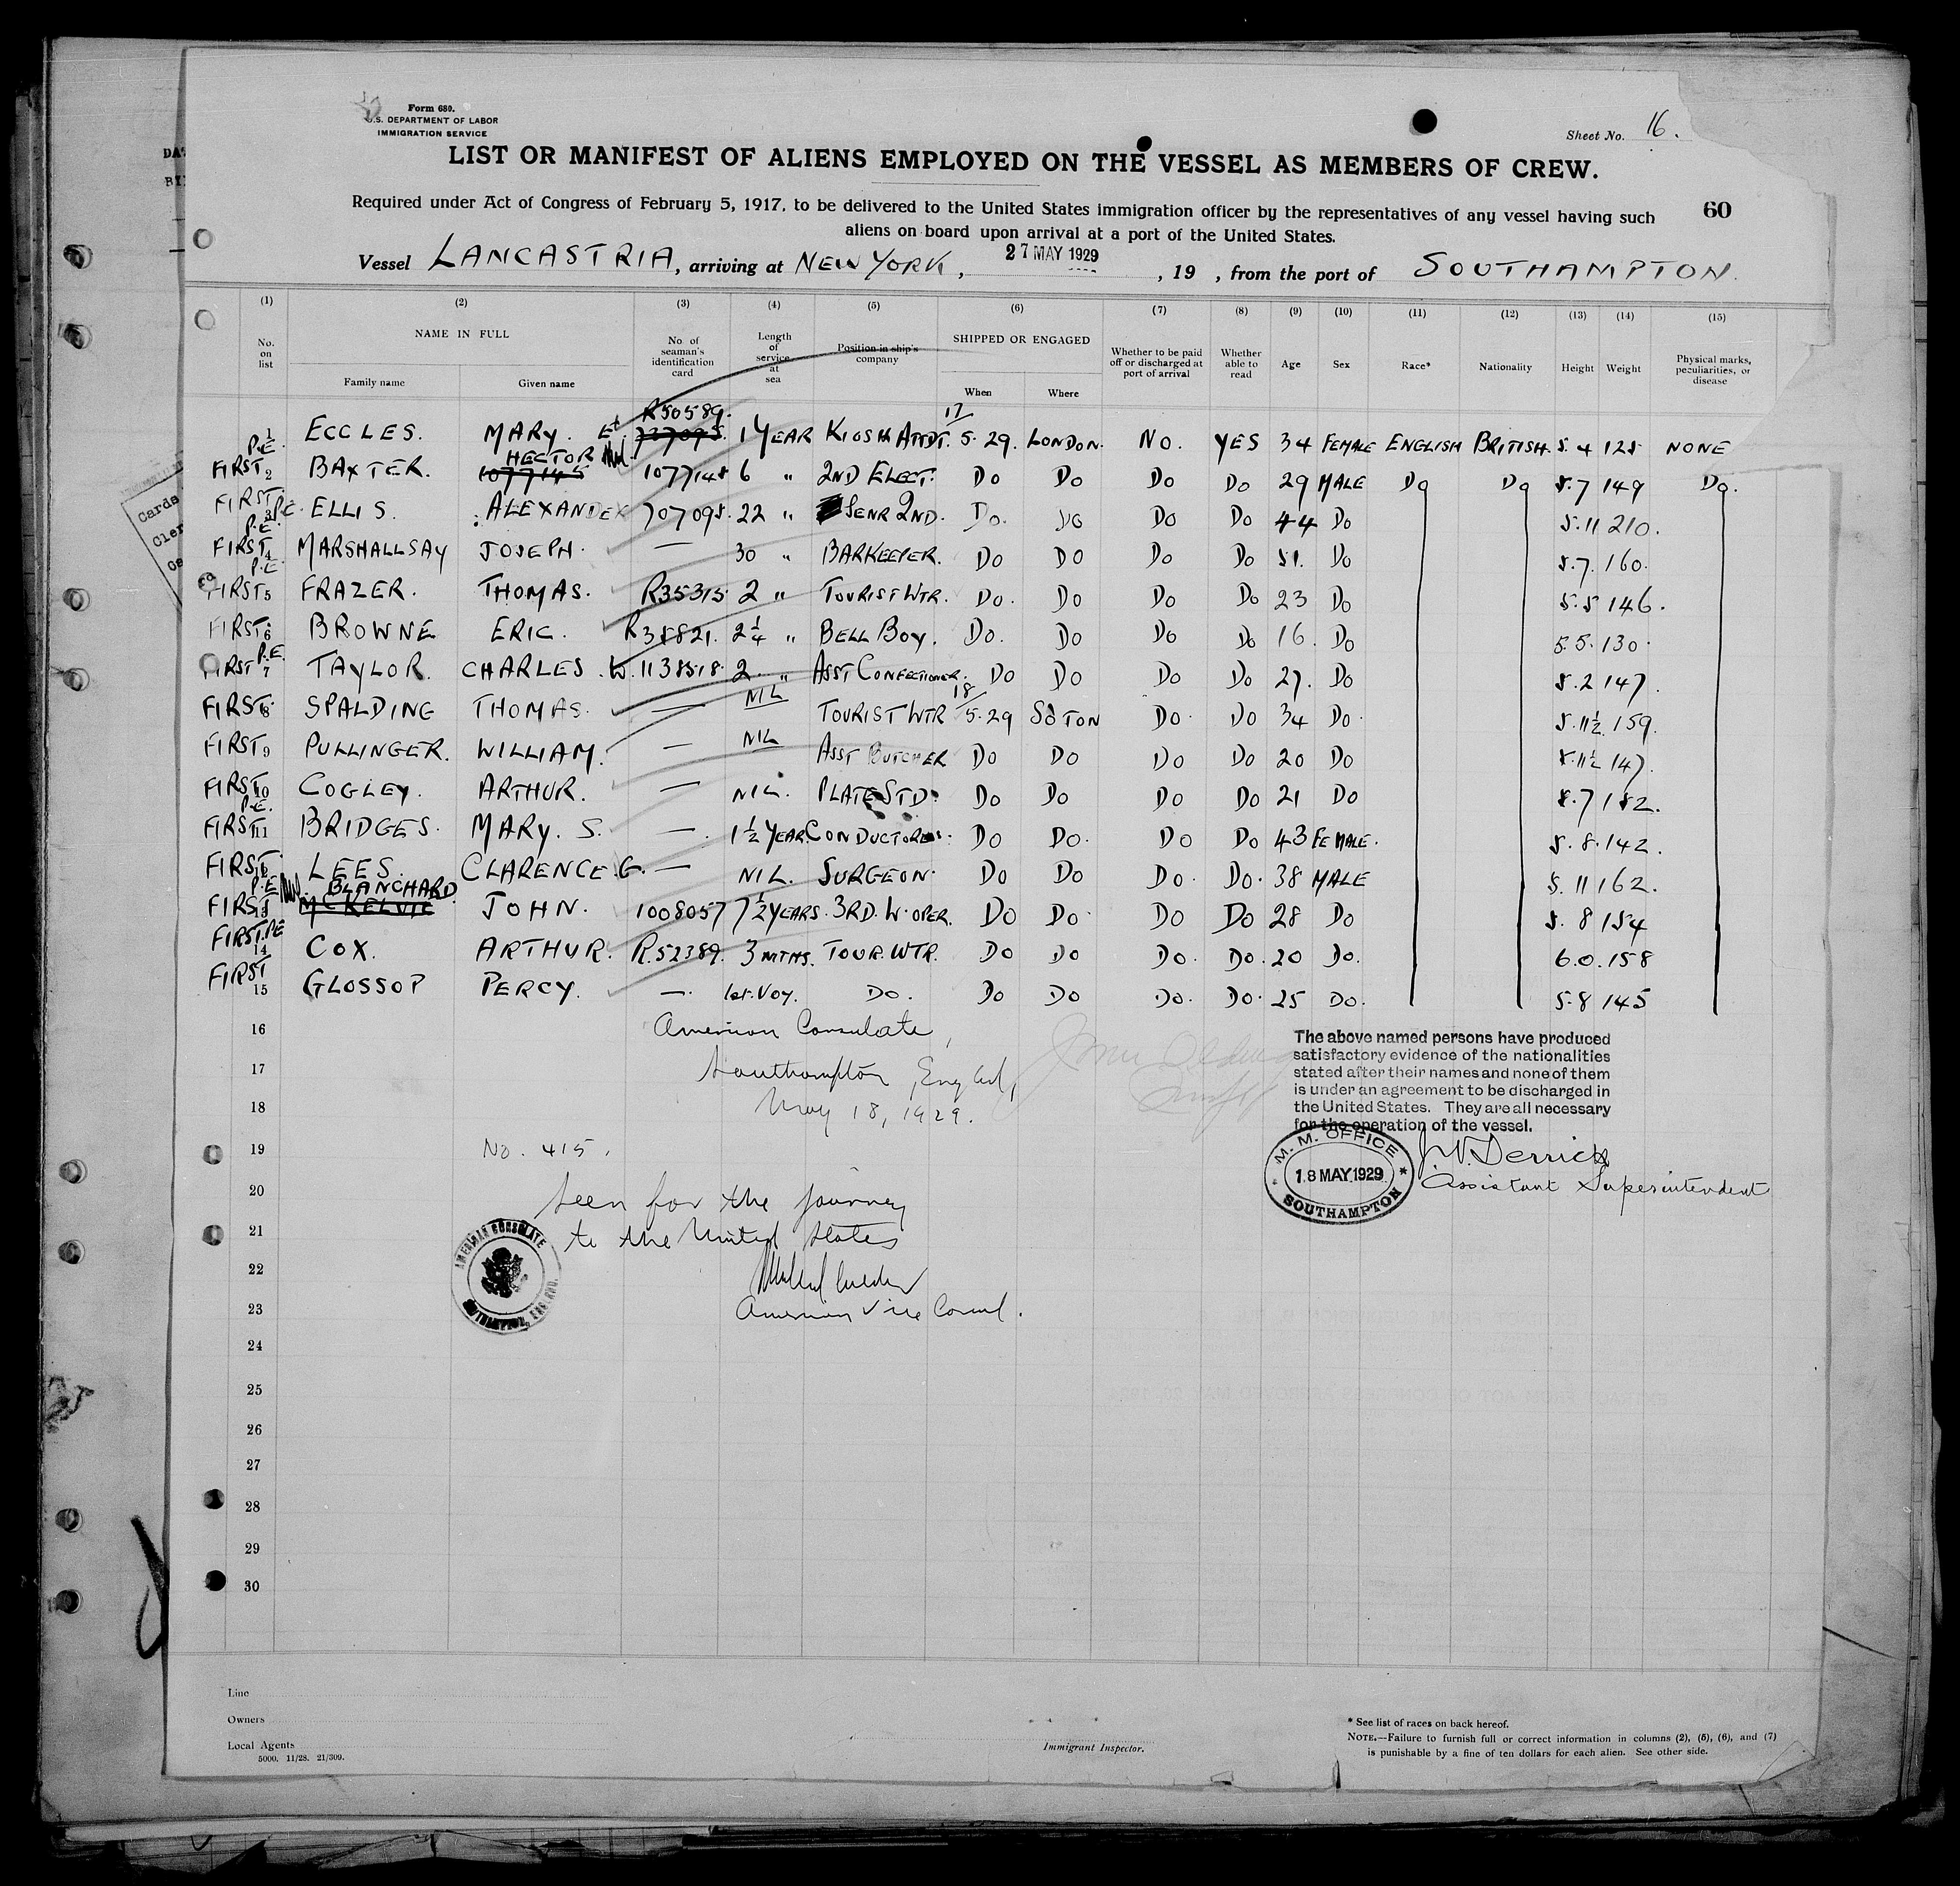 Form 680.
U.S. DEPARTMENT OF LABOR
IMMIGRATION SERVICE
Sheet No. 16.
LIST OR MANIFEST OF ALIENS EMPLOYED ON THE VESSEL AS MEMBERS OF CREW.
Required under Act of Congress of February 5, 1917, to be delivered to the United States immigration officer by the representatives of any vessel having such
60
aliens on board upon arrival at a port of the United States.
Vessel LANCASTRIA, arriving at NEW YORK, 27 MAY 1929, 19 , from the port of SOUTHAMPTON.
(1) (2) (3) (4) (5) (6) (7) (8) (9) (10) (11) (12) (13) (14) (15)
No. on list NAME IN FULL Family name Given name No. of seaman's identification card Length of service at sea Position in ship's company SHIPPED OR ENGAGED When Where Whether to be paid off or discharged at port of arrival Whether able to read Age Sex Race* Nationality Height Weight Physical marks, peculiarities, or disease
R50589. 17/
1 ECCLES. MARY. E. 1 YEAR KIOSK ATTDT. 5.29. LONDON. NO. YES 34 FEMALE ENGLISH BRITISH. 5.4 125 NONE
P.E. HECTOR
FIRST 2 BAXTER. 1077145 1077148 6 " 2ND ELECT. DO DO DO DO 29 MALE DO DO 5.7 149 DO.
FIRST 3 P.E. ELLIS. ALEXANDER 707095. 22 " SENR 2ND. DO. DO DO DO 44 DO 5.11 210.
P.E.
FIRST 4 MARSHALLSAY JOSEPH. — 30 " BARKEEPER. DO DO DO DO 51. DO 5.7. 160.
P.E.
FIRST 5 FRAZER. THOMAS. R35315 2 " TOURIST WTR. DO. DO DO DO 23 DO 5.5 146.
FIRST 6 BROWNE ERIC. R38821. 2¼ " BELL BOY. DO. DO DO DO 16. DO 5.5. 130.
P.E.
FIRST 7 TAYLOR. CHARLES. W. 1138518. 2 " ASST CONFECTIONER. DO DO DO DO 27. DO 5.2 147.
FIRST 8 SPALDING THOMAS. — NIL TOURIST WTR 18/5.29 SO TON DO. DO 34 DO. 5.11½ 159.
FIRST 9 PULLINGER. WILLIAM. — NIL ASST BUTCHER DO DO DO DO 20 DO 5.11½ 147.
FIRST 10 COGLEY. ARTHUR. — NIL. PLATE STD. DO DO DO DO 21 DO 5.7 182.
P.E.
FIRST 11 BRIDGES. MARY. S. — 1½ YEAR CONDUCTORESS. DO DO. DO DO 43 FEMALE. 5.8. 142.
FIRST 12 LEES. CLARENCE G. — NIL. SURGEON. DO DO DO. DO. 38 MALE 5.11 162.
P.E. BLANCHARD
FIRST 13 MCKELVIE JOHN. 1008057 7½ YEARS. 3RD. W. OPER. DO DO. DO DO 28 DO 5.8 154
FIRST P.E. 14 COX. ARTHUR. R.52389. 3 MTHS. TOUR. WTR. DO DO DO. DO. 20 DO. 6.0. 158
FIRST 15 GLOSSOP PERCY. — 1st. Voy. DO. DO DO DO. DO. 25 DO. 5.8 145
16 American Consulate,
17 Southampton, England,
18 May 18, 1929.
The above named persons have produced
satisfactory evidence of the nationalities
stated after their names and none of them
is under an agreement to be discharged in
the United States. They are all necessary
for the operation of the vessel.
19 No. 415.
M. M. OFFICE
18 MAY 1929
SOUTHAMPTON
J. W. Derrick
Assistant Superintendent
20 Seen for the journey
21 to the United States
AMERICAN CONSULATE
SOUTHAMPTON, ENGLAND.
22
23 American Vice Consul.
24
25
26
27
28
29
30
Line
Owners
Local Agents
5000. 11/28. 21/309.
Immigrant Inspector.
* See list of races on back hereof.
NOTE.—Failure to furnish full or correct information in columns (2), (5), (6), and (7)
is punishable by a fine of ten dollars for each alien. See other side.